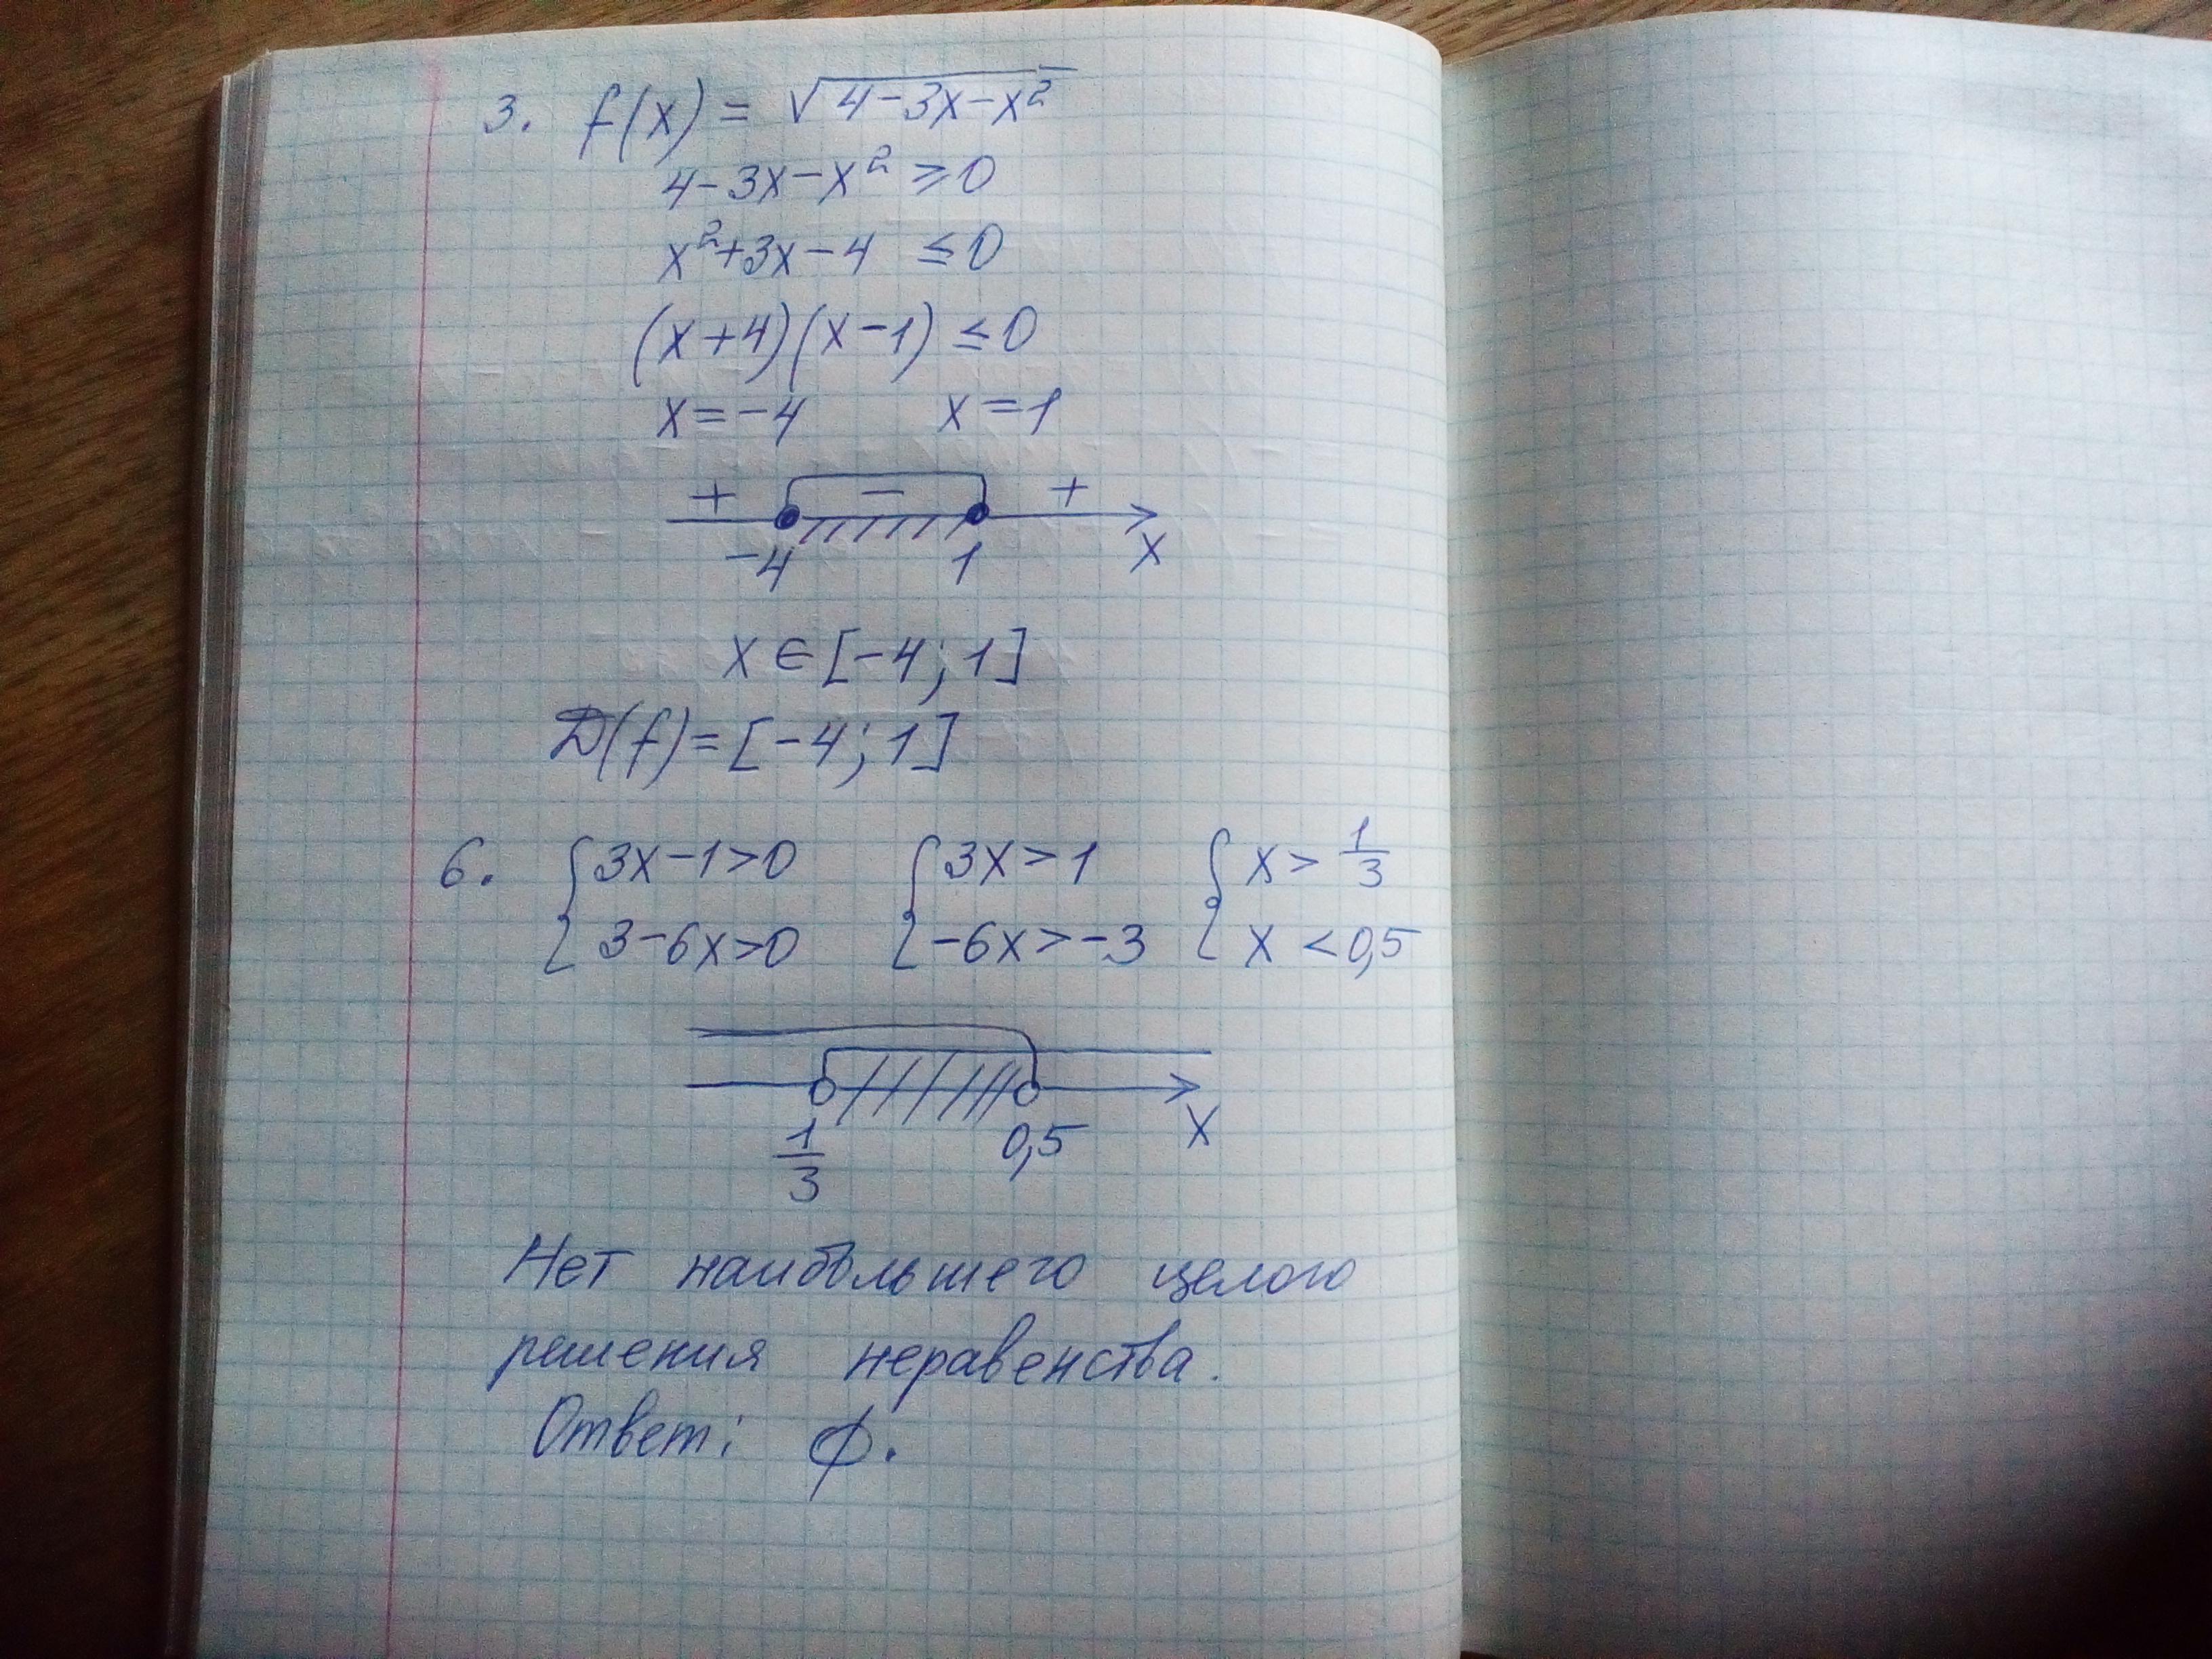 3. f(x) = √(4-3x-x²)
4-3x-x² ≥ 0
x²+3x-4 ≤ 0
(x+4)(x-1) ≤ 0
x=-4 x=1
+ - +
-4 1 x
x ∈ [-4; 1]
D(f) = [-4; 1]
6. { 3x-1>0 { 3x>1 { x> 1/3
3-6x>0 -6x>-3 x <0,5
1/3 0,5 x
Нет наибольшего целого
решения неравенства.
Ответ: ∅.